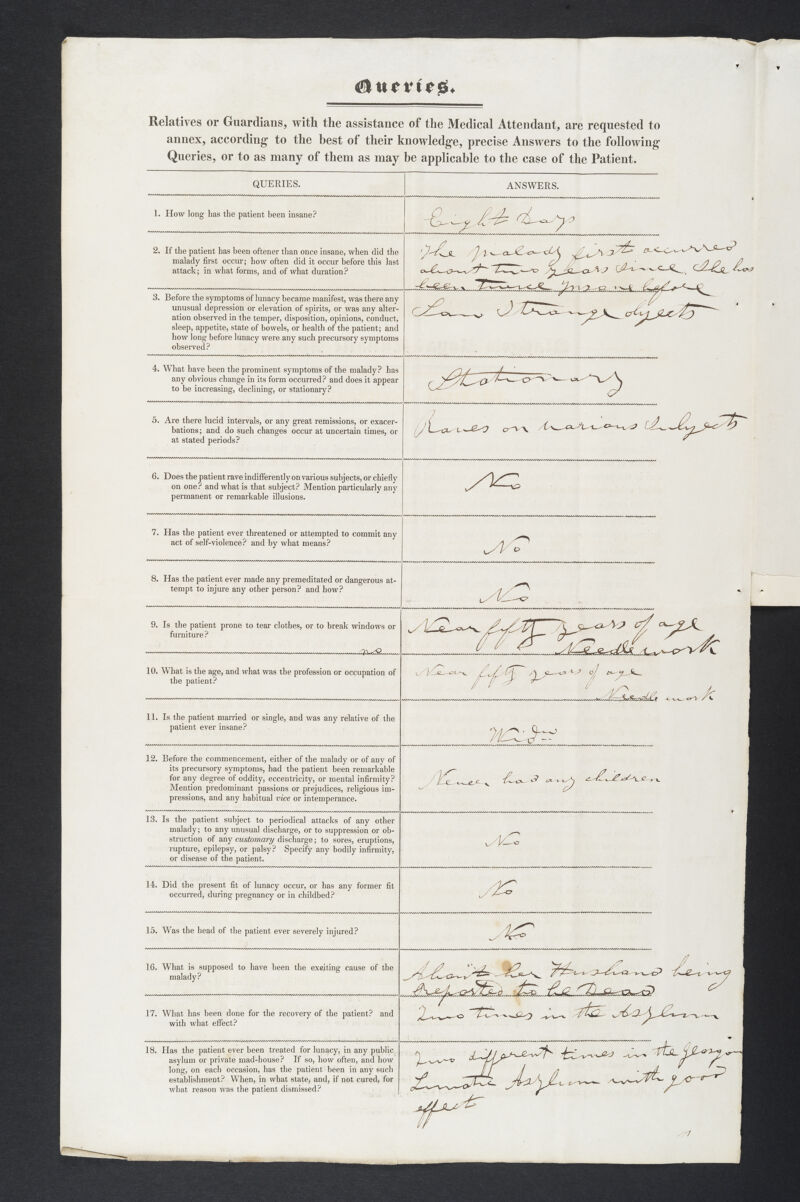 Queries.
Relatives or Guardians, with the assistance of the Medical Attendant, are requested to
annex, according to the best of their knowledge, precise Answers to the following
Queries, or to as many of them as may be applicable to the case of the Patient.
QUERIES.
ANSWERS.
1. How long has the patient been insane?
Eight Days
2. If the patient has been oftener than once insane, when did the
malady first occur; how often did it occur before this last
attack; in what forms, and of what duration?
The Malady first occurred
about two years since. She has
been twice insane before
3. Before the symptoms of lunacy became manifest, was there any
unusual depression or elevation of spirits, or was any alter-
ation observed in the temper, disposition, opinions, conduct,
sleep, appetite, state of bowels, or health of the patient; and
how long before lunacy were any such precursory symptoms
observed?
Saw Strange objects
4. What have been the prominent symptoms of the malady? has
any obvious change in its form occurred? and does it appear
to be increasing, declining, or stationary?
Stationary
5. Are there lucid intervals, or any great remissions, or exacer-
bations; and do such changes occur at uncertain times, or
at stated periods?
Raves on various Subjects
6. Does the patient rave indifferently on various subjects, or chiefly
on one? and what is that subject? Mention particularly any
permanent or remarkable illusions.
No
7. Has the patient ever threatened or attempted to commit any
act of self-violence? and by what means?
No
8. Has the patient ever made any premeditated or dangerous at-
tempt to injure any other person? and how?
No
9. Is the patient prone to tear clothes, or to break windows or
furniture?
no
Near fifty years of age
Needle work
10. What is the age, and what was the profession or occupation of
the patient?
Near fifty years of age
Needle work
11. Is the patient married or single, and was any relative of the
patient ever insane?
Widw
12. Before the commencement, either of the malady or of any of
its precursory symptoms, had the patient been remarkable
for any degree of oddity, eccentricity, or mental infirmity?
Mention predominant passions or prejudices, religious im-
pressions, and any habitual vice or intemperance.
Never had any children
13. Is the patient subject to periodical attacks of any other
malady; to any unusual discharge, or to suppression or ob-
struction of any customary discharge; to sores, eruptions,
rupture, epilepsy, or palsy? Specify any bodily infirmity,
or disease of the patient.
No
14. Did the present fit of lunacy occur, or has any former fit
occurred, during pregnancy or in childbed?
No
15. Was the head of the patient ever severely injured?
No
16. What is supposed to have been the exciting cause of the
malady?
About her Husband being
reported to be Dead
17. What has been done for the recovery of the patient? and
with what effect?
Two times in the Asylum
18. Has the patient ever been treated for lunacy, in any public
asylum or private mad-house? If so, how often, and how
long, on each occasion, has the patient been in any such
establishment? When, in what state, and, if not cured, for
what reason was the patient dismissed?
Two different times in the Glasgow
Lunatic Asylum with good
effect